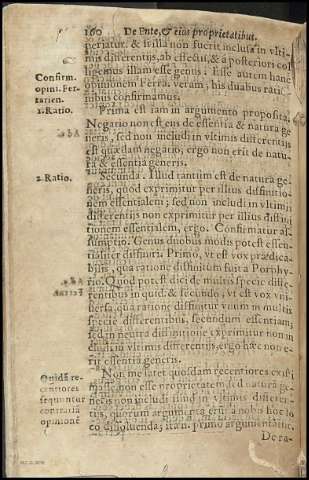 160 De Ente, & eius proprietatibus.
periatur. & si illa non fuerit inclusa in vlti-
mis differentijs, ab effectu, & a posteriori col-
ligemus illam esse genus. Esse autem hanc
Confirm. opini. Fer-
rarien.
opinionem Ferra. veram, his duabus ratio
nibus confirmamus.
1. Ratio.
Prima est iam in argumento proposita.
Negatio non est ens de essentia & natura ge
neris, sed non includi in vltimis differentijs
est quædam negatio, ergo non erit de natu-
ra & essentia generis.
2. Ratio.
Secunda. Illud tantum est de natura ge-
neris, quod exprimitur per illius diffinitio
nem essentialem; sed non includi in vltimis
differentijs non exprimitur per illius diffini
tionem essentialem, ergo. Confirmatur as-
sumptio. Genus duobus modis potest essen-
tialiter diffiniri. Primo, vt est vox prædica-
bilis, qua ratione diffinitum fuit a Porphy-
rio. Quod potest dici de multis specie diffe-
rentibus in quid. & secundo, vt est vox vni-
uersa, qua ratione diffinitur vnum in multis
specie differentibus, secundum essentiam;
sed in neutra diffinitione exprimitur non in
cludi in vltimis differentijs, ergo hæc non e-
rit essentia generis.
Quidã re-
centiores
sequuntur
contrariã
opinionē
Non me latet quosdam recentiores existi
masse non esse proprietatem, sed natura ge-
neris non includi illud in vltimis differen-
tijs, quorum argumenta erūt a nobis hoc lo
co dissoluenda; itaq. primo argumentantur.
De ra-